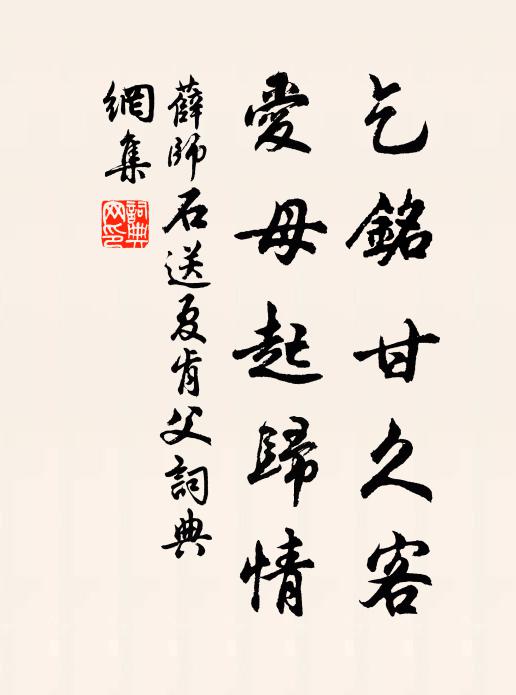 乞銘甘久客
愛母起歸情
薛師石送夏肯父詞典
網集
詞典網印